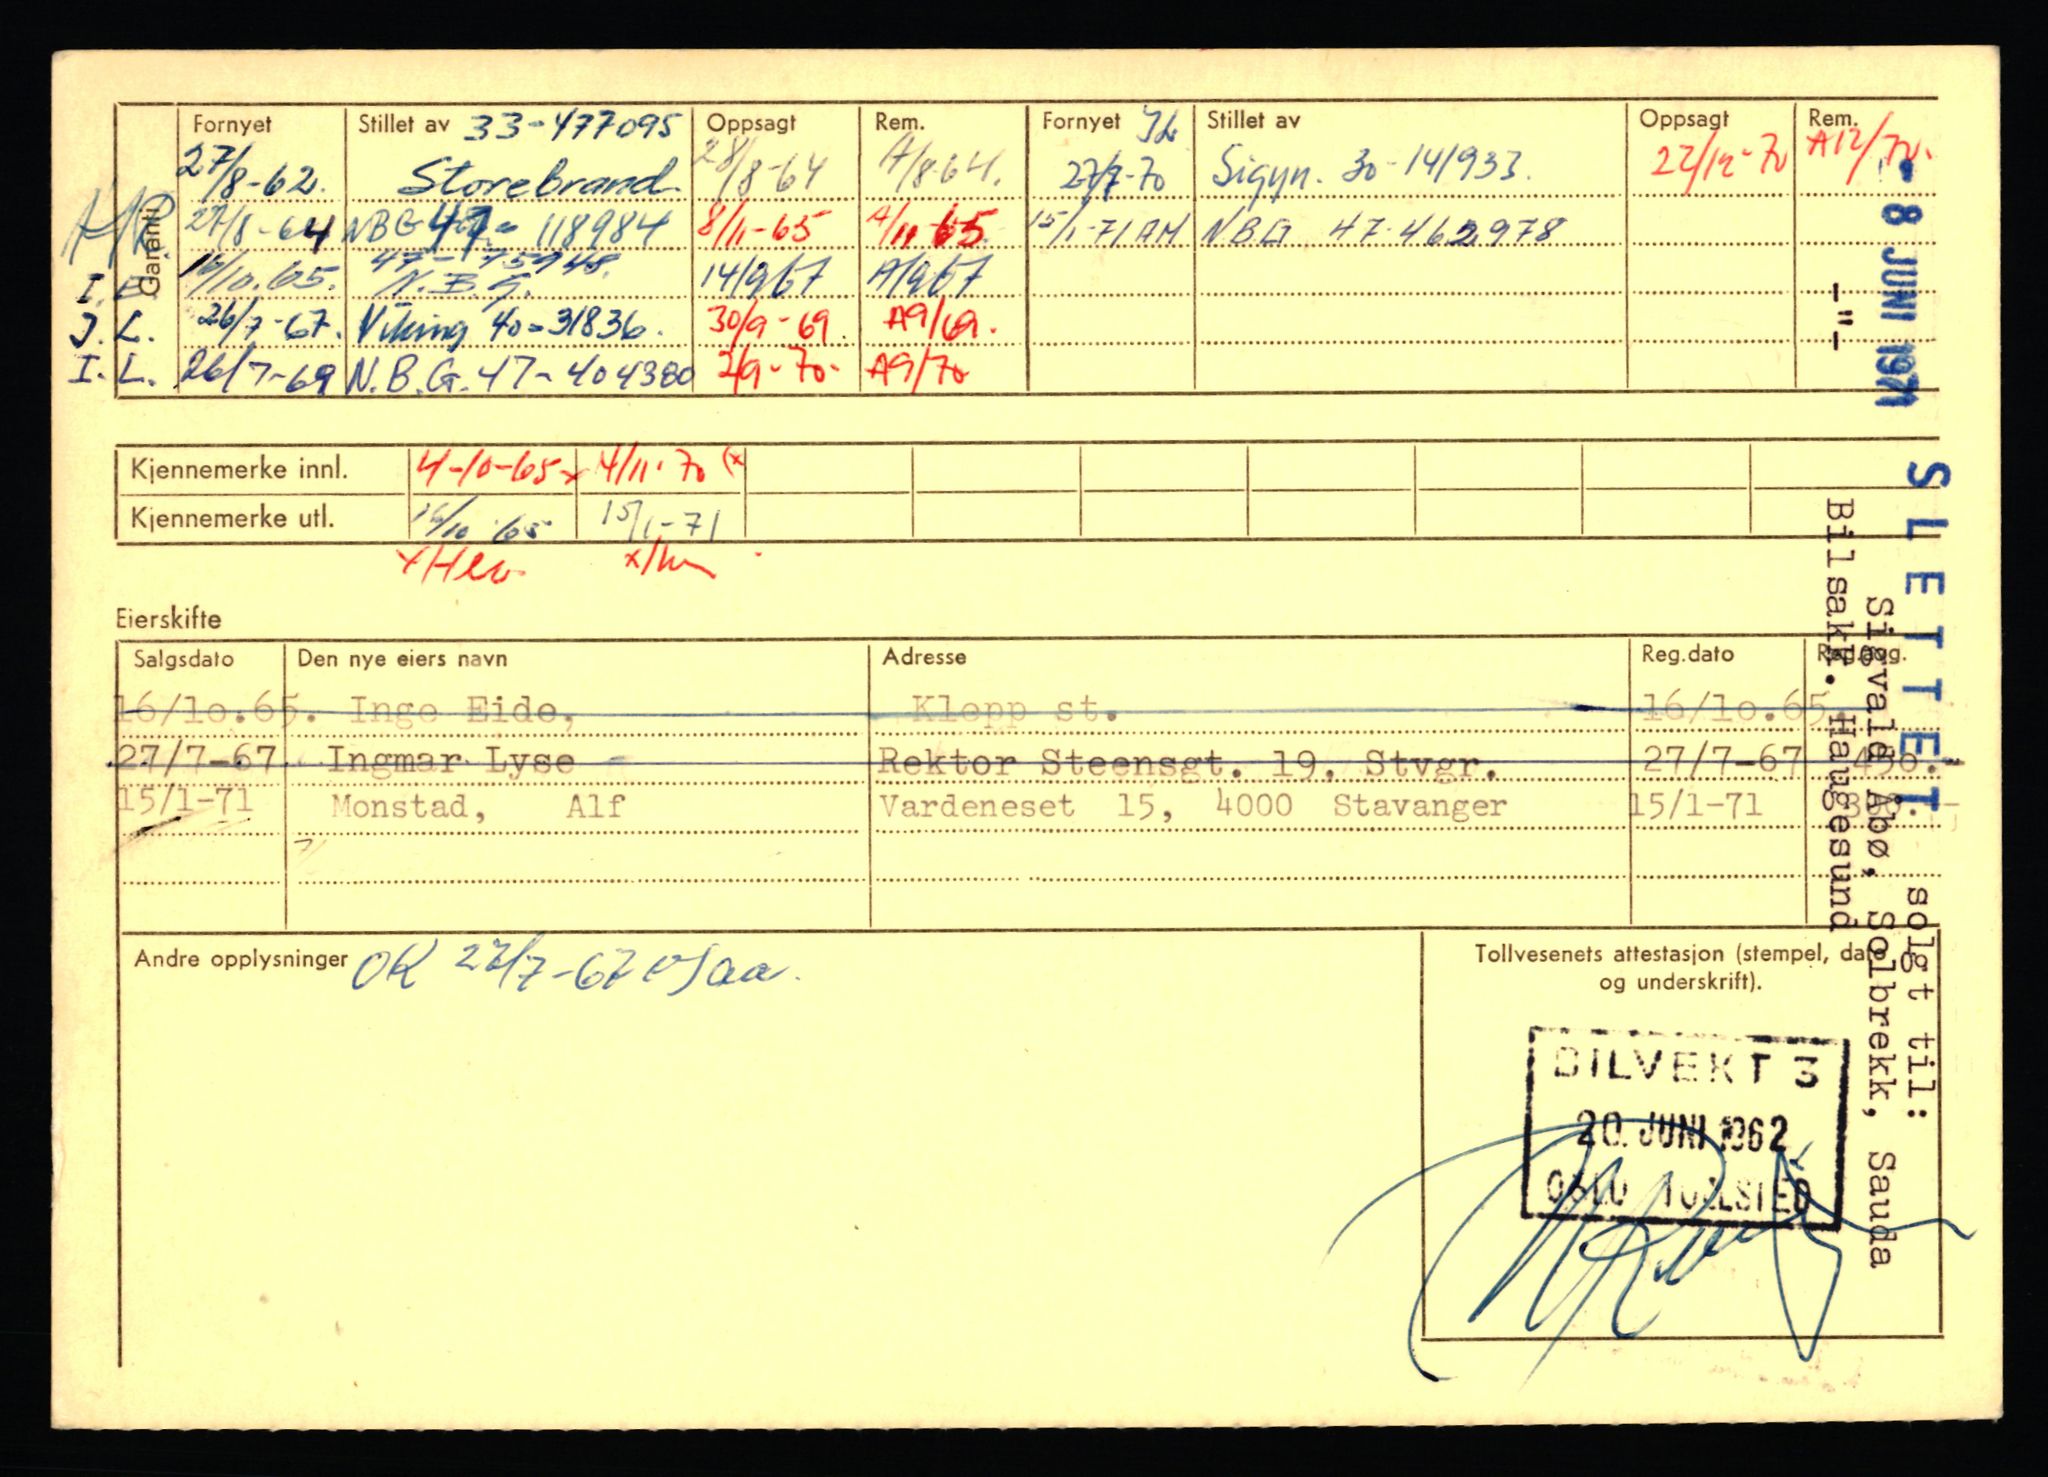 Garanti
Fornyet Stillet av 33-477095 Oppsagt Rem. Fornyet Stillet av Oppsagt Rem.
27/8-62. Storebrand 28/8-64 A/8-64. 27/7-70 Sigyn. 30-141933. 22/12-70 A12/70.
27/8-64 NBG 47- 118984 8/11-65 A/11-65 15/1-71 AM NBG 47-462978
I. E. 16/10.65. N.B.G. 14/9 67 A/9 67
I. L. 26/7-67. Viking 40-31836. 30/9-69 A9/69.
I. L. 26/7-69 N.B.G. 47-404380 2/9-70- A9/70
Kjennemerke innl. 4-10-65 x 4/11-70 (x
Kjennemerke utl. 16/10 65 15/1-71
Eierskifte
Salgsdato Den nye eiers navn Adresse Reg.dato Reg.avg.
16/10.65. Inge Eide, Klepp st. 16/10.65.
27/7-67 Ingmar Lyse Rektor Steensgt. 19. Stvgr. 27/7-67
15/1-71 Monstad, Alf Vardeneset 15, 4000 Stavanger 15/1-71
Andre opplysninger OK 27/7-67
Tollvesenets attestasjon (stempel, dato
og underskrift).
BILVEKT 3
20. JUNI 1962
OSLO TOLLSTED
- 8 JUNI 1971 SLETTET solgt til:
-"- Sigvald Åbø, Solbrekk, Sauda
Bilsakk. Haugesund